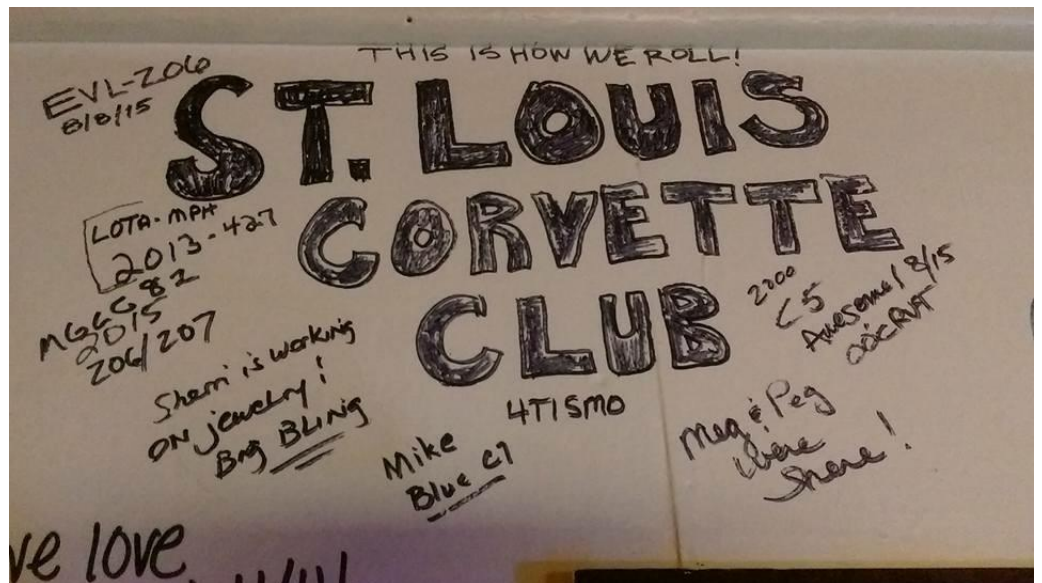 THIS IS HOW WE ROLL!
EVL-Z06
8/8/15
ST. LOUIS
CORVETTE
CLUB
4TISMO
LOTA-MPH
2013-427
MGCG 82
2015
Z06/Z07
Sherri is working
ON jewelry!
Big BLING
Mike
Blue C7
2000
C5
Awesome! 8/15
Meg & Peg
were
here!
ve love